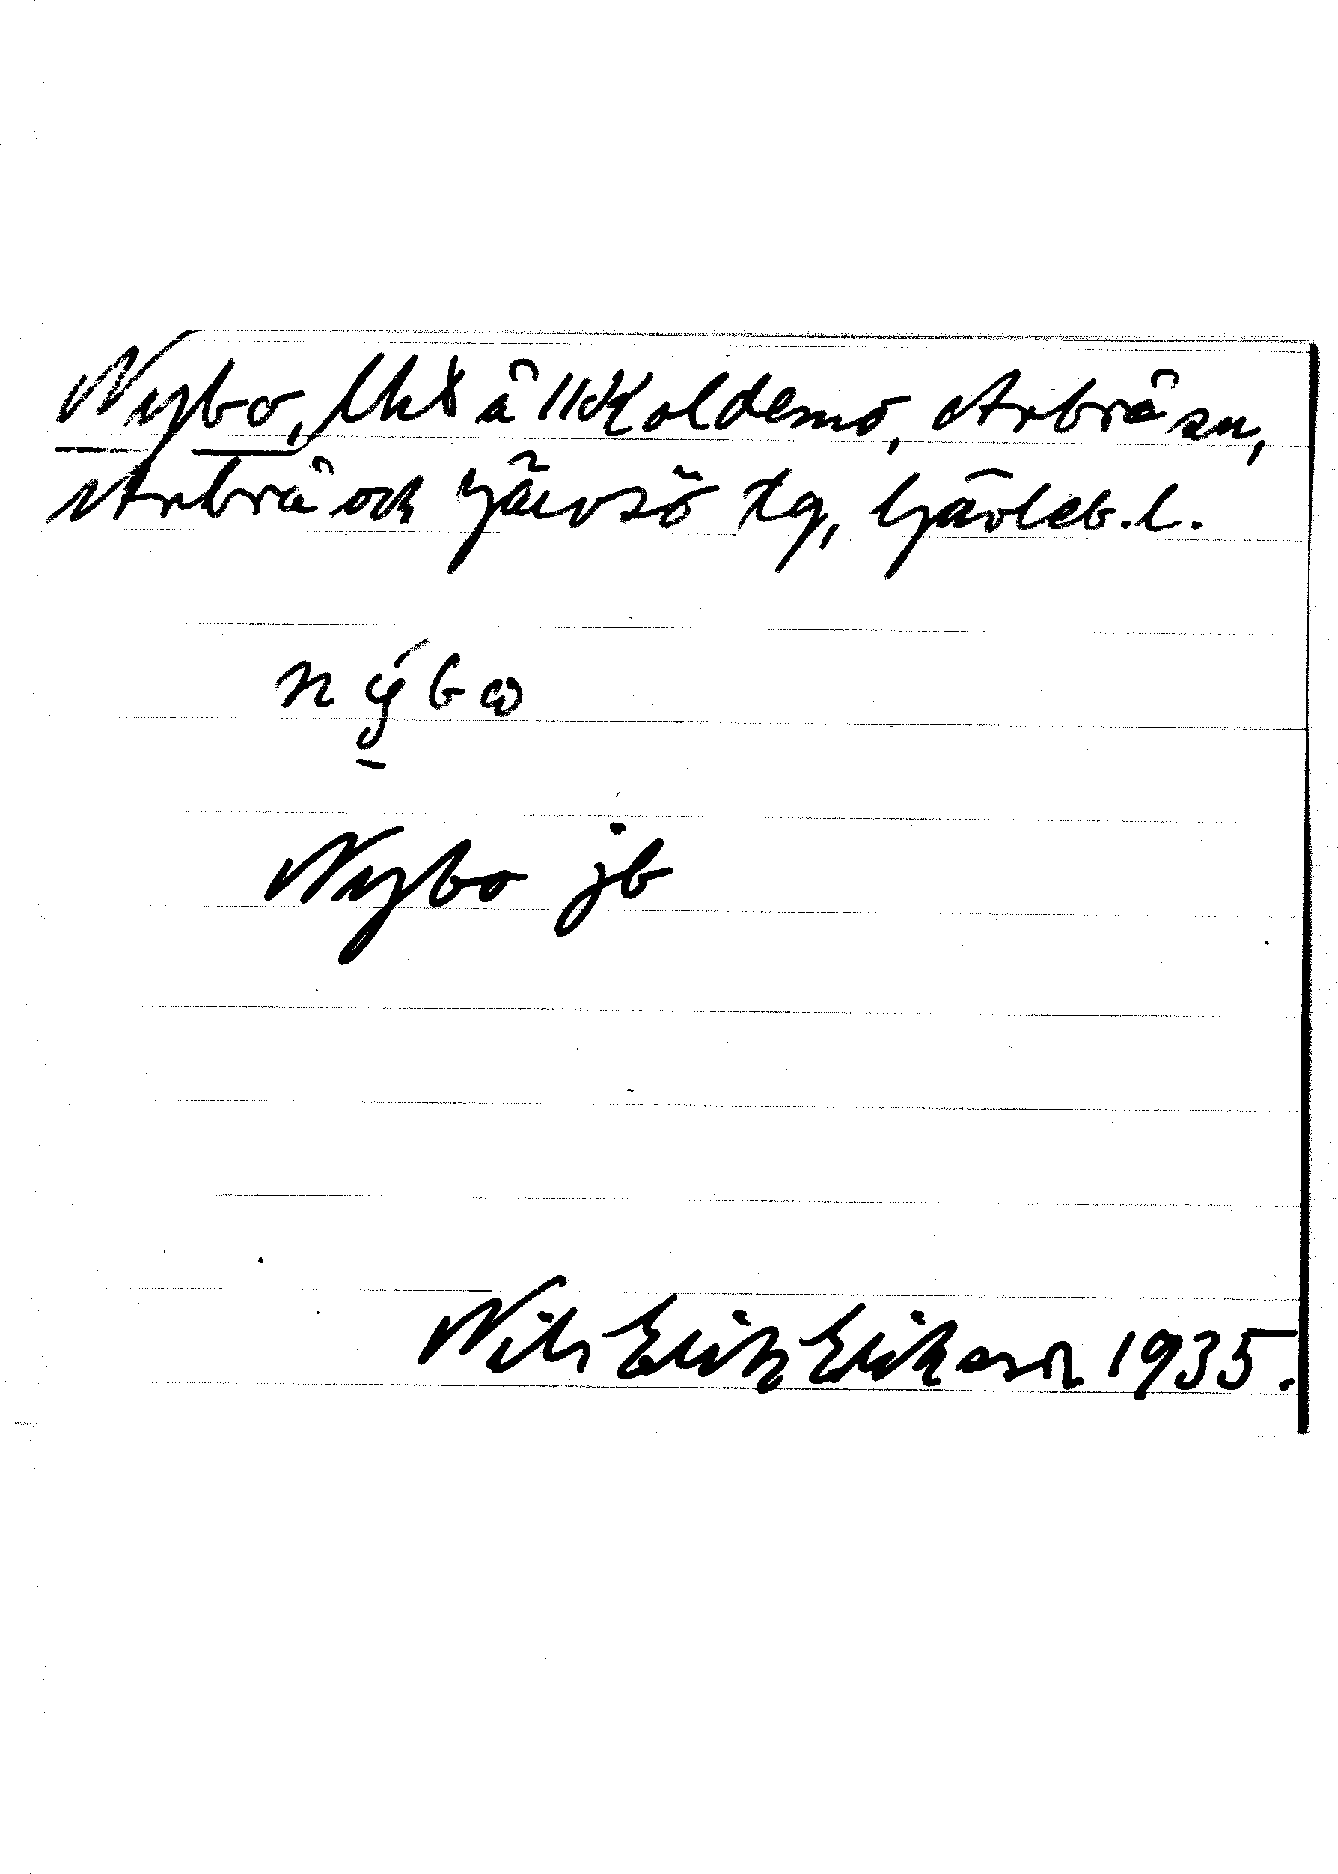 Nybo, lht å 11 Koldemo, Arbrå sn,
Arbrå och Järvsö tg, Gävleb. l.
nýbω
Nybo jb
Nils Erik Erikson 1935.